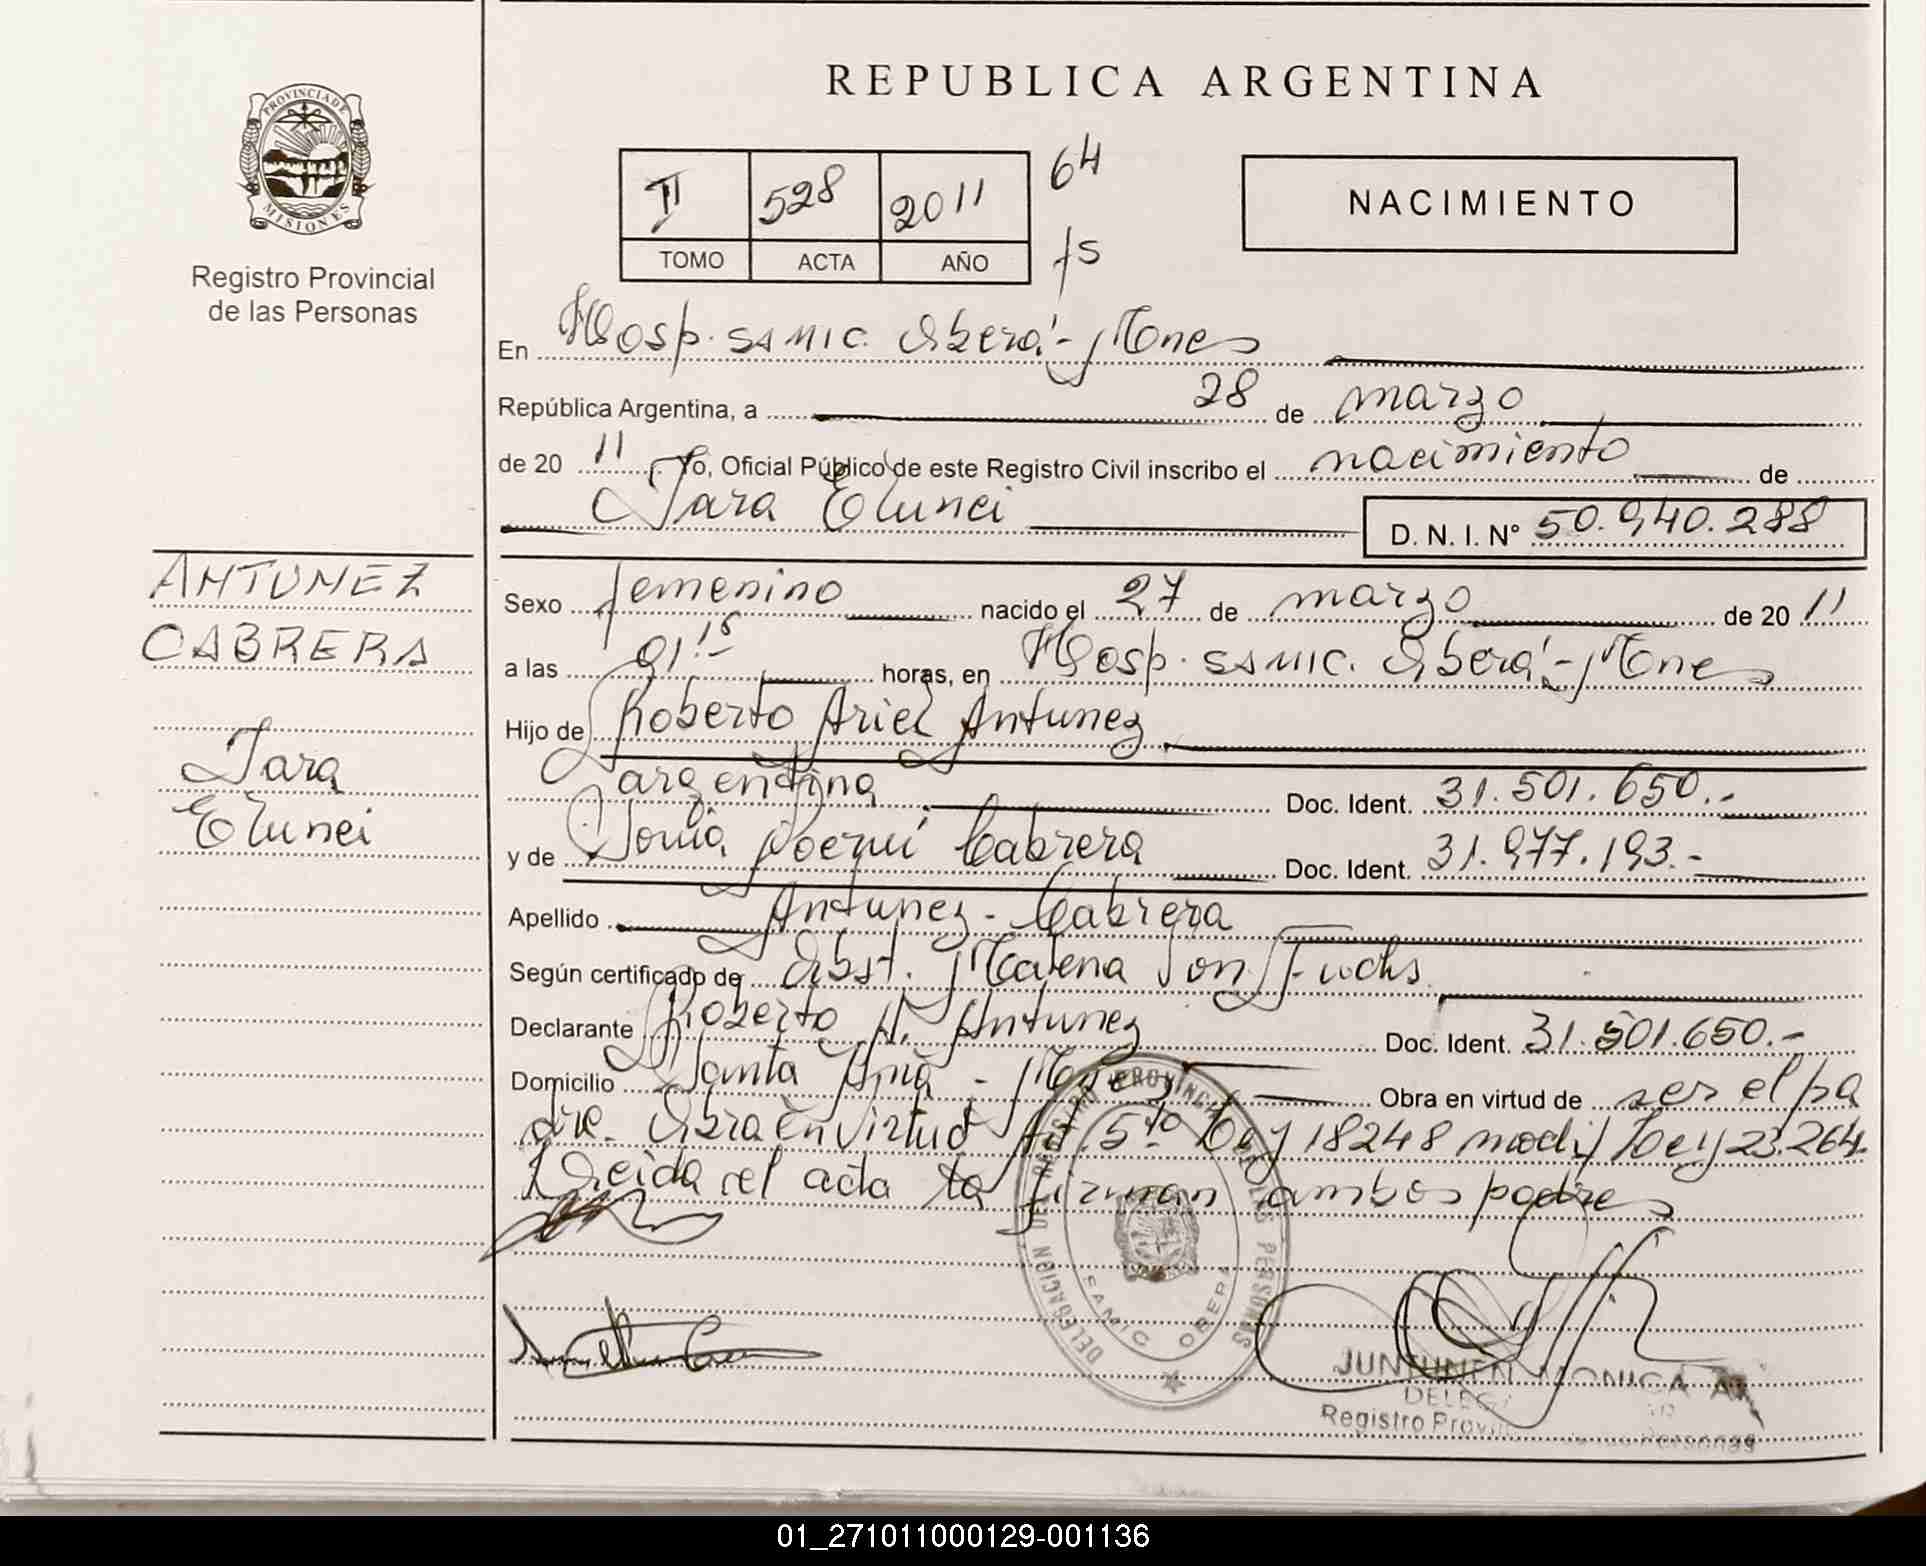 REPUBLICA ARGENTINA
PROVINCIA DE MISIONES
Registro Provincial
de las Personas
II 528 2011 64
TOMO ACTA AÑO fs
NACIMIENTO
En Hosp. SAMIC. Oberá - Mnes
República Argentina, a 28 de marzo
de 20 11. Yo, Oficial Público de este Registro Civil inscribo el nacimiento de
Iara Elunei
D. N. I. Nº 50.940.288
ANTUNEZ
CABRERA
Iara
Elunei
Sexo femenino nacido el 27 de marzo de 20 11
a las 01 15 horas, en Hosp. SAMIC. Oberá - Mnes
Hijo de Roberto Ariel Antunez
argentina Doc. Ident. 31.501.650.-
y de Sonia Cabrera Doc. Ident. 31.977.193.-
Apellido Antunez - Cabrera
Según certificado de Obst. Malena Von Fuchs
Declarante Roberto A. Antunez Doc. Ident. 31.501.650.-
Domicilio Santa Ana - Mnes Obra en virtud de ser el pa
dre. Obra en virtud Art. 5to Ley 18248 modif Ley 23.264.
Leida el acta la firman ambos padres
DELEGACION DEL REGISTRO PROVINCIAL DE LAS PERSONAS
SAMIC OBERA
JUNTUNEN MONICA A.
Registro
Personas
01_271011000129-001136